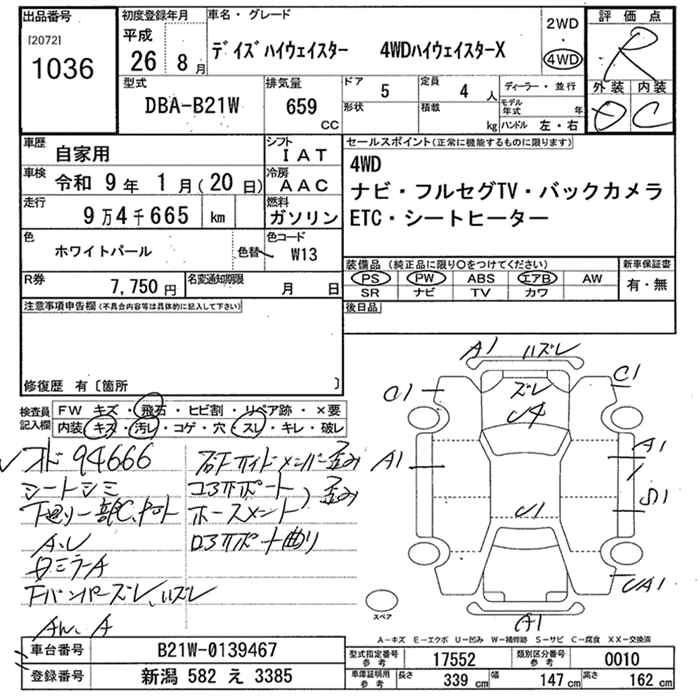 出品番号
[2072]
1036
初度登録年月
平成
26 8 月
車名・グレード
デイズハイウェイスター 4WDハイウェイスターX
2WD
・
4WD
評価点
R
外装 内装
D C
型式
DBA-B21W
排気量
659
CC
ドア
5
定員
4 人
形状
積載
kg
ディーラー・並行
モデル年式 年
ハンドル 左・右
車歴
自家用
シフト
IAT
車検
令和 9 年 1 月(20 日)
冷房
AAC
走行
9万4千665 km
燃料
ガソリン
色
ホワイトパール
色替
色コード
W13
R券
7,750 円
名変通知期限
月 日
セールスポイント(正常に機能するものに限ります)
4WD
ナビ・フルセグTV・バックカメラ
ETC・シートヒーター
装備品(純正品に限り○をつけてください)
新車保証書
PS PW ABS エアB AW
有・無
SR ナビ TV カワ
後日品
注意事項申告欄(不具合内容等は具体的に記入して下さい)
修復歴 有〔箇所 〕
検査員記入欄
FW キズ・飛石・ヒビ割・リペア跡・×要
内装・キズ・汚レ・コゲ・穴・スレ・キレ・破レ
94666
シートシミ
A、U
ミラーA
FバンパーズレハズレA
右Fサイドメンバー歪み
コアサポート
ホースメント
歪み
ロアサポート曲り
A1 ハズレ
ズレ
U4
C1
A1
A1
U1
UA1
A1
スペア
A-キズ E-エクボ U-凹み W-補修跡 S-サビ C-腐食 XX-交換済
車台番号
B21W-0139467
登録番号
新潟 582 え 3385
型式指定番号
参考
17552
類別区分番号
参考
0010
車庫証明用
参考
長さ
339 cm
幅
147 cm
高さ
162 cm